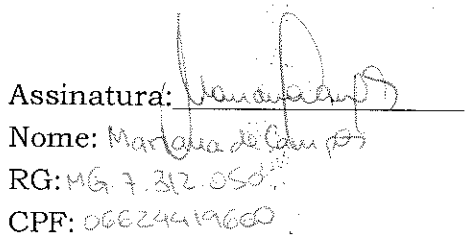 Assinatura:
Nome: Mariana de Campos
RG: MG.7.312.050
CPF: 06624419600